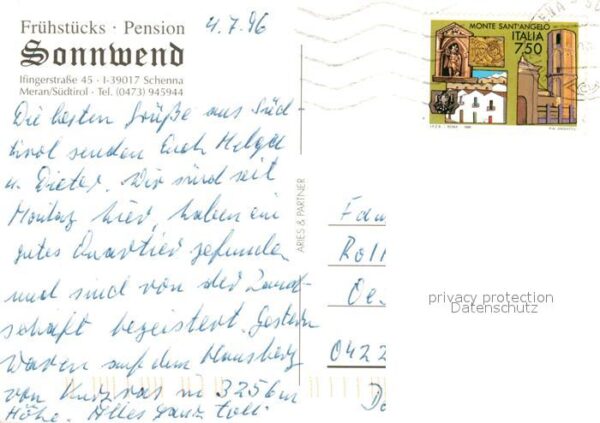 Frühstücks · Pension
Sonnwend
Ifingerstraße 45 · I-39017 Schenna
Meran/Südtirol · Tel. (0473) 945944
4.7.96
MONTE SANT'ANGELO
ITALIA
750
Die besten Grüße aus Süd-
tirol senden Euch Helga
u. Dieter. Wir sind seit
Montag hier, haben ein
gutes Quartier gefunden
und sind von der Land-
schaft begeistert. Gestern
waren auf dem
von Kurzras in 3256m
Höhe. Alles ganz toll.
ARIES & PARTNER
Fam
Roll
Oe
0422
privacy protection
Datenschutz